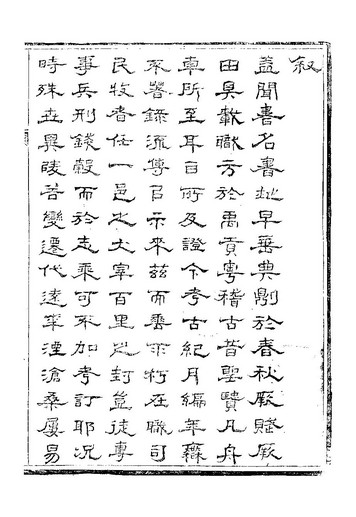 叙
蓋聞書名書地早垂典則於春秋厥賦厥
田具載職方於禹貢粤稽古昔聖賢凡舟
車所至耳目所及證今考古紀月編年靡
不著錄流傳以示來茲而垂不朽在職司
民牧者任一邑之大宰百里之封豈徒專
事兵刑錢穀而於志乘可不加考訂耶況
時殊世異陵谷變遷代遠年湮滄桑屢易